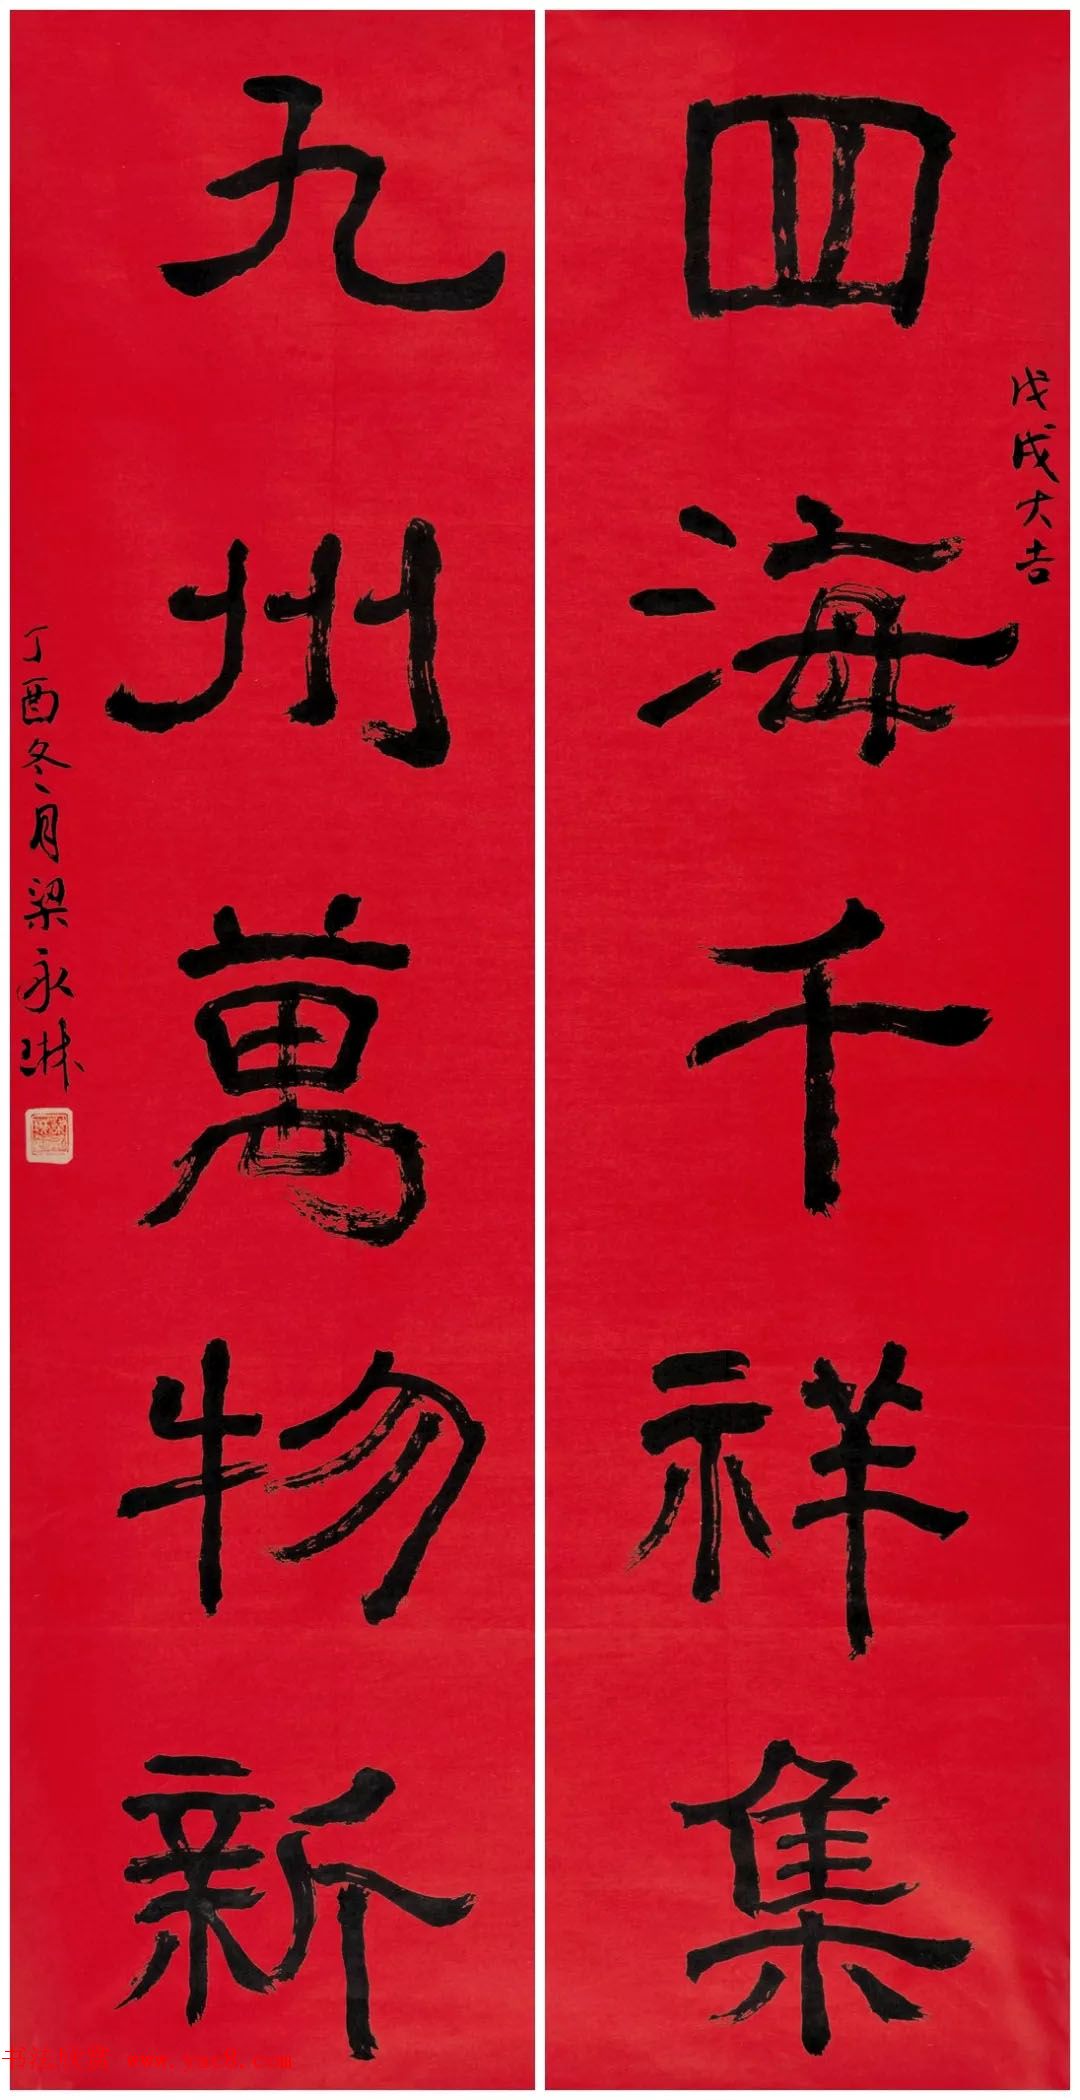 戊戌大吉
四海千祥集
九州萬物新
丁酉冬月梁永琳
www.yac8.com